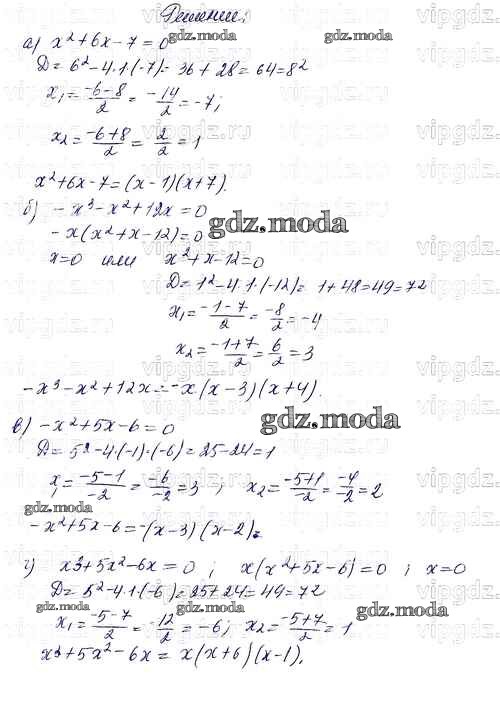 Решение:
а) x² + 6x - 7 = 0
D = 6² - 4·1·(-7) = 36 + 28 = 64 = 8²
x₁ = (-6-8)/2 = -14/2 = -7;
x₂ = (-6+8)/2 = 2/2 = 1
x² + 6x - 7 = (x - 1)(x + 7).
б) -x³ - x² + 12x = 0
-x(x² + x - 12) = 0
x = 0 или x² + x - 12 = 0
D = 1² - 4·1·(-12) = 1 + 48 = 49 = 7²
x₁ = (-1-7)/2 = -8/2 = -4
x₂ = (-1+7)/2 = 6/2 = 3
-x³ - x² + 12x = -x(x - 3)(x + 4).
в) -x² + 5x - 6 = 0
D = 5² - 4·(-1)·(-6) = 25 - 24 = 1
x₁ = (-5-1)/-2 = -6/-2 = 3 ; x₂ = (-5+1)/-2 = -4/-2 = 2
-x² + 5x - 6 = -(x - 3)(x - 2).
г) x³ + 5x² - 6x = 0 ; x(x² + 5x - 6) = 0 ; x = 0
D = 5² - 4·1·(-6) = 25 + 24 = 49 = 7²
x₁ = (-5-7)/2 = -12/2 = -6; x₂ = (-5+7)/2 = 1
x³ + 5x² - 6x = x(x + 6)(x - 1).
gdz.moda
vipgdz.ru